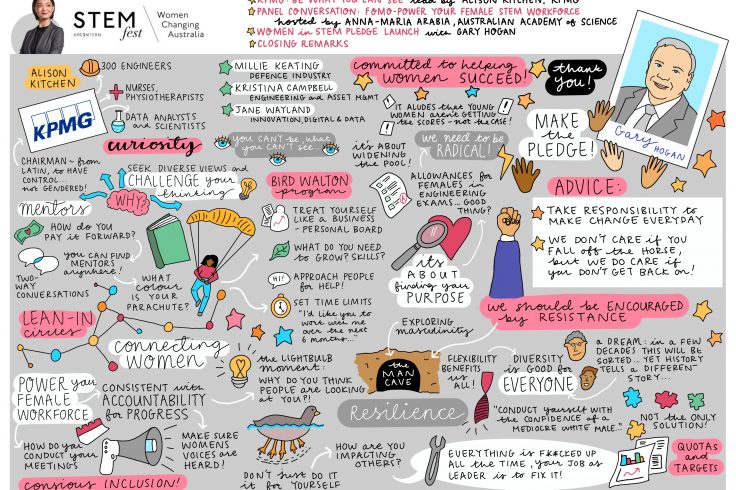 STEM
fest
APRINTERN
Women
Changing
Australia
KPMG: BE WHAT YOU CAN SEE lead by ALISON KITCHEN, KPMG
PANEL CONVERSATION: FOMO-POWER YOUR FEMALE STEM WORKFORCE
hosted by ANNA-MARIA ARABIA, AUSTRALIAN ACADEMY of SCIENCE
WOMEN in STEM PLEDGE LAUNCH with GARY HOGAN
CLOSING REMARKS
ALISON
KITCHEN
300 ENGINEERS
NURSES,
PHYSIOTHERAPISTS
DATA ANALYSTS
and SCIENTISTS
KPMG
CHAIRMAN ~ from
LATIN, to HAVE
CONTROL...
not GENDERED!
MILLIE KEATING
DEFENCE INDUSTRY
KRISTINA CAMPBELL
ENGINEERING and ASSET MGMT
JANE WAYLAND
INNOVATION, DIGITAL & DATA
curiosity
you CAN'T be what
you CAN'T SEE...
SEEK DIVERSE VIEWS and
CHALLENGE your
thinking
WHY?
mentors
HOW do YOU
PAY it FORWARD?
you can FIND
MENTORS
anywhere!
TWO-
WAY
CONVERSATIONS
WHAT
COLOUR
is YOUR
PARACHUTE?
BIRD WALTON
program
TREAT YOURSELF
LIKE a BUSINESS
- PERSONAL BOARD
WHAT DO YOU NEED
to GROW? SKILLS?
HI!
APPROACH PEOPLE
for HELP!
SET TIME LIMITS
"I'd like you to
work with me
over the next
6 months..."
LEAN-IN
circles
connecting
WOMEN
the LIGHTBULB
moment:
WHY DO YOU THINK
PEOPLE are LOOKING
at YOU?!
POWER your
FEMALE
WORKFORCE
CONSISTENT with
ACCOUNTABILITY
for PROGRESS
HOW do you
CONDUCT your
MEETINGS
MAKE SURE
WOMENS
VOICES are
HEARD!
conscious INCLUSION!
DON'T JUST DO IT
it for YOURSELF
HOW are YOU
IMPACTING
OTHERS?
committed to helping
women SUCCEED!
thank
you!
IT ALUDES that YOUNG
WOMEN aren't GETTING
the SCORES - not the CASE!
it's about
WIDENING
the POOL!
we need to be
RADICAL!
ALLOWANCES for
FEMALES in
ENGINEERING
EXAMS... GOOD
THING?
its
ABOUT
finding your
PURPOSE
MAKE
the
PLEDGE!
Gary
HOGAN
ADVICE:
TAKE RESPONSIBILITY to
MAKE CHANGE EVERYDAY
WE DON'T CARE if YOU
FALL off the HORSE,
but WE DO CARE if
you DON'T GET BACK on!
we should be ENCOURAGED
by RESISTANCE
EXPLORING
masculinity
the
MAN
CAVE
FLEXIBILITY
BENEFITS
us ALL!
DIVERSITY
is GOOD for
EVERYONE
a DREAM: in a FEW
DECADES THIS WILL BE
SORTED... YET HISTORY
TELLS a DIFFERENT
STORY...
Resilience
"CONDUCT yourself WITH
the CONFIDENCE of a
MEDIOCRE WHITE MALE."
NOT the ONLY
SOLUTION!
EVERYTHING is F*CKED UP
ALL the TIME, your JOB as
LEADER is to FIX IT!
QUOTAS
and
TARGETS